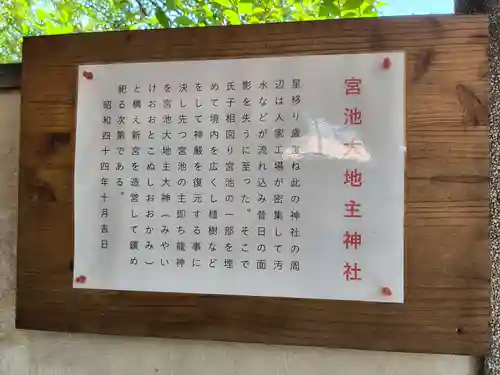 宮池大地主神社
星移り盛重ね此の神社の周
辺は人家工場が密集して汚
水などが流れ込み昔日の面
影を失うに至った。そこで
氏子相図り宮池の一部を埋
めて境内を広くし植樹など
をして神厳を復元する事に
決し先つ宮池の主即ち龍神
を宮池大地主大神（みやい
けおおとこぬしおおかみ）
と構え新宮を造営して鎮め
祀る次第である。
昭和四十四年十月吉日